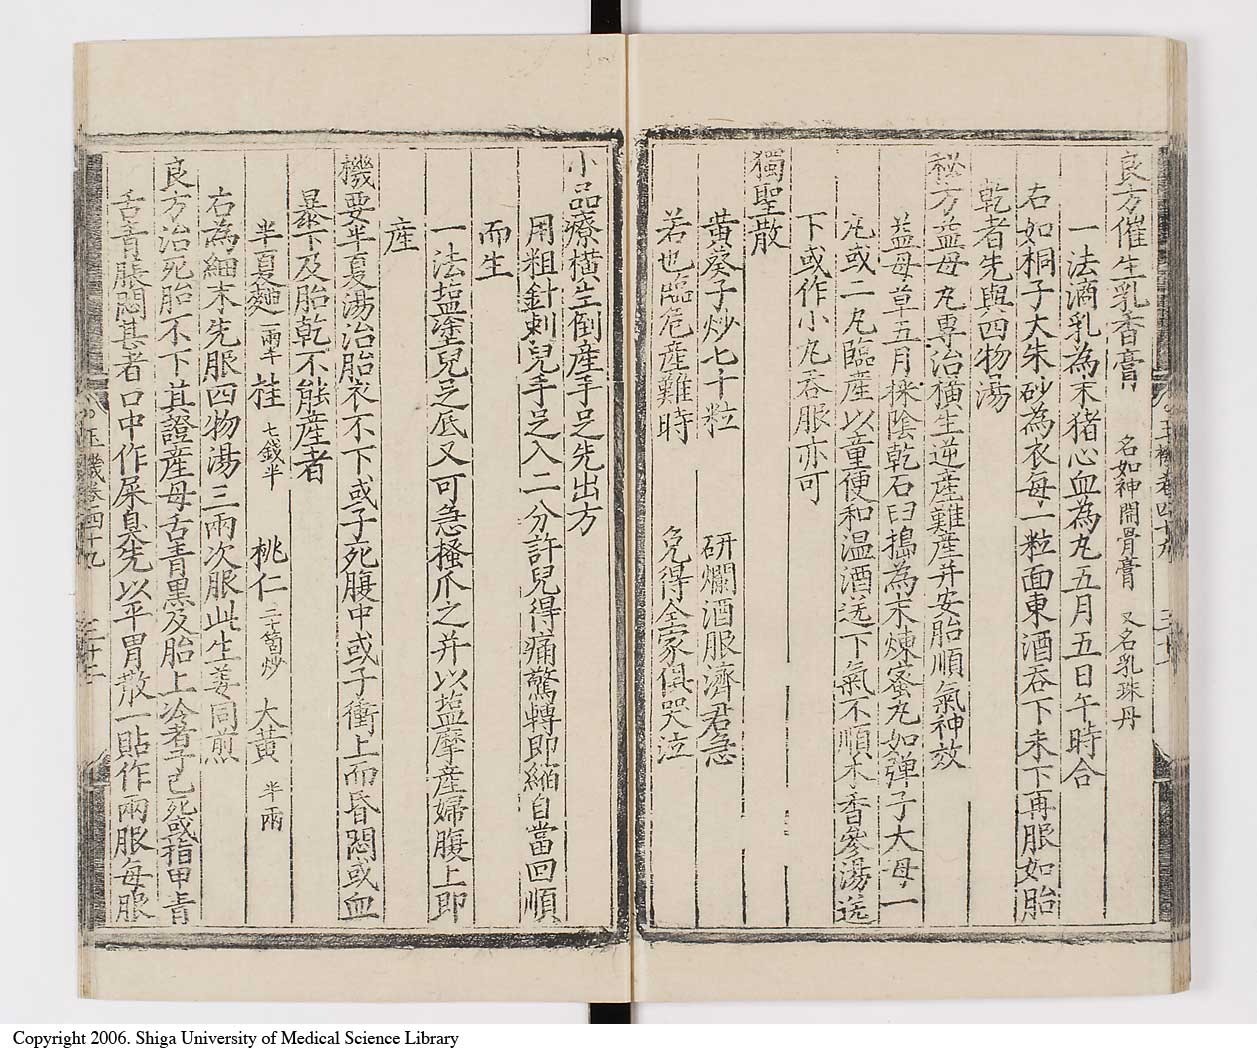 良方催生乳香膏 名如神開骨膏 又名乳珠丹
一法滴乳為末猪心血為丸五月五日午時合
右如桐子大朱砂為衣每一粒面東酒吞下未下再服如胎
乾者先與四物湯
秘方益母丸專治橫生逆産難産并安胎順氣神效
益母草五月採陰乾石臼搗為末煉蜜丸如彈子大每一
丸或二丸臨産以童便和温酒送下氣不順木香參湯送
下或作小丸吞服亦可
獨聖散
黄葵子炒七十粒 研爛酒服濟君急
若也臨危産難時 免得全家俱哭泣
小品療橫生倒産手足先出方
用粗針刺兒手足入二分許兒得痛驚轉即縮自當回順
而生
一法塩塗兒足底又可急搔爪之并以塩摩産婦腹上即
産
機要半夏湯治胎衣不下或子死腹中或子衝上而昏悶或血
暴下及胎乾不能産者
半夏麯 一兩半 桂 七錢半 桃仁 三十箇炒 大黄 半兩
右為細末先服四物湯三兩次服此生姜同煎
良方治死胎不下其證産母舌青黒及胎上冷者子已死或指甲青
舌青脹悶甚者口中作屎臭先以平胃散一貼作兩服每服
玉機卷四十九 三十二
Copyright 2006. Shiga University of Medical Science Library